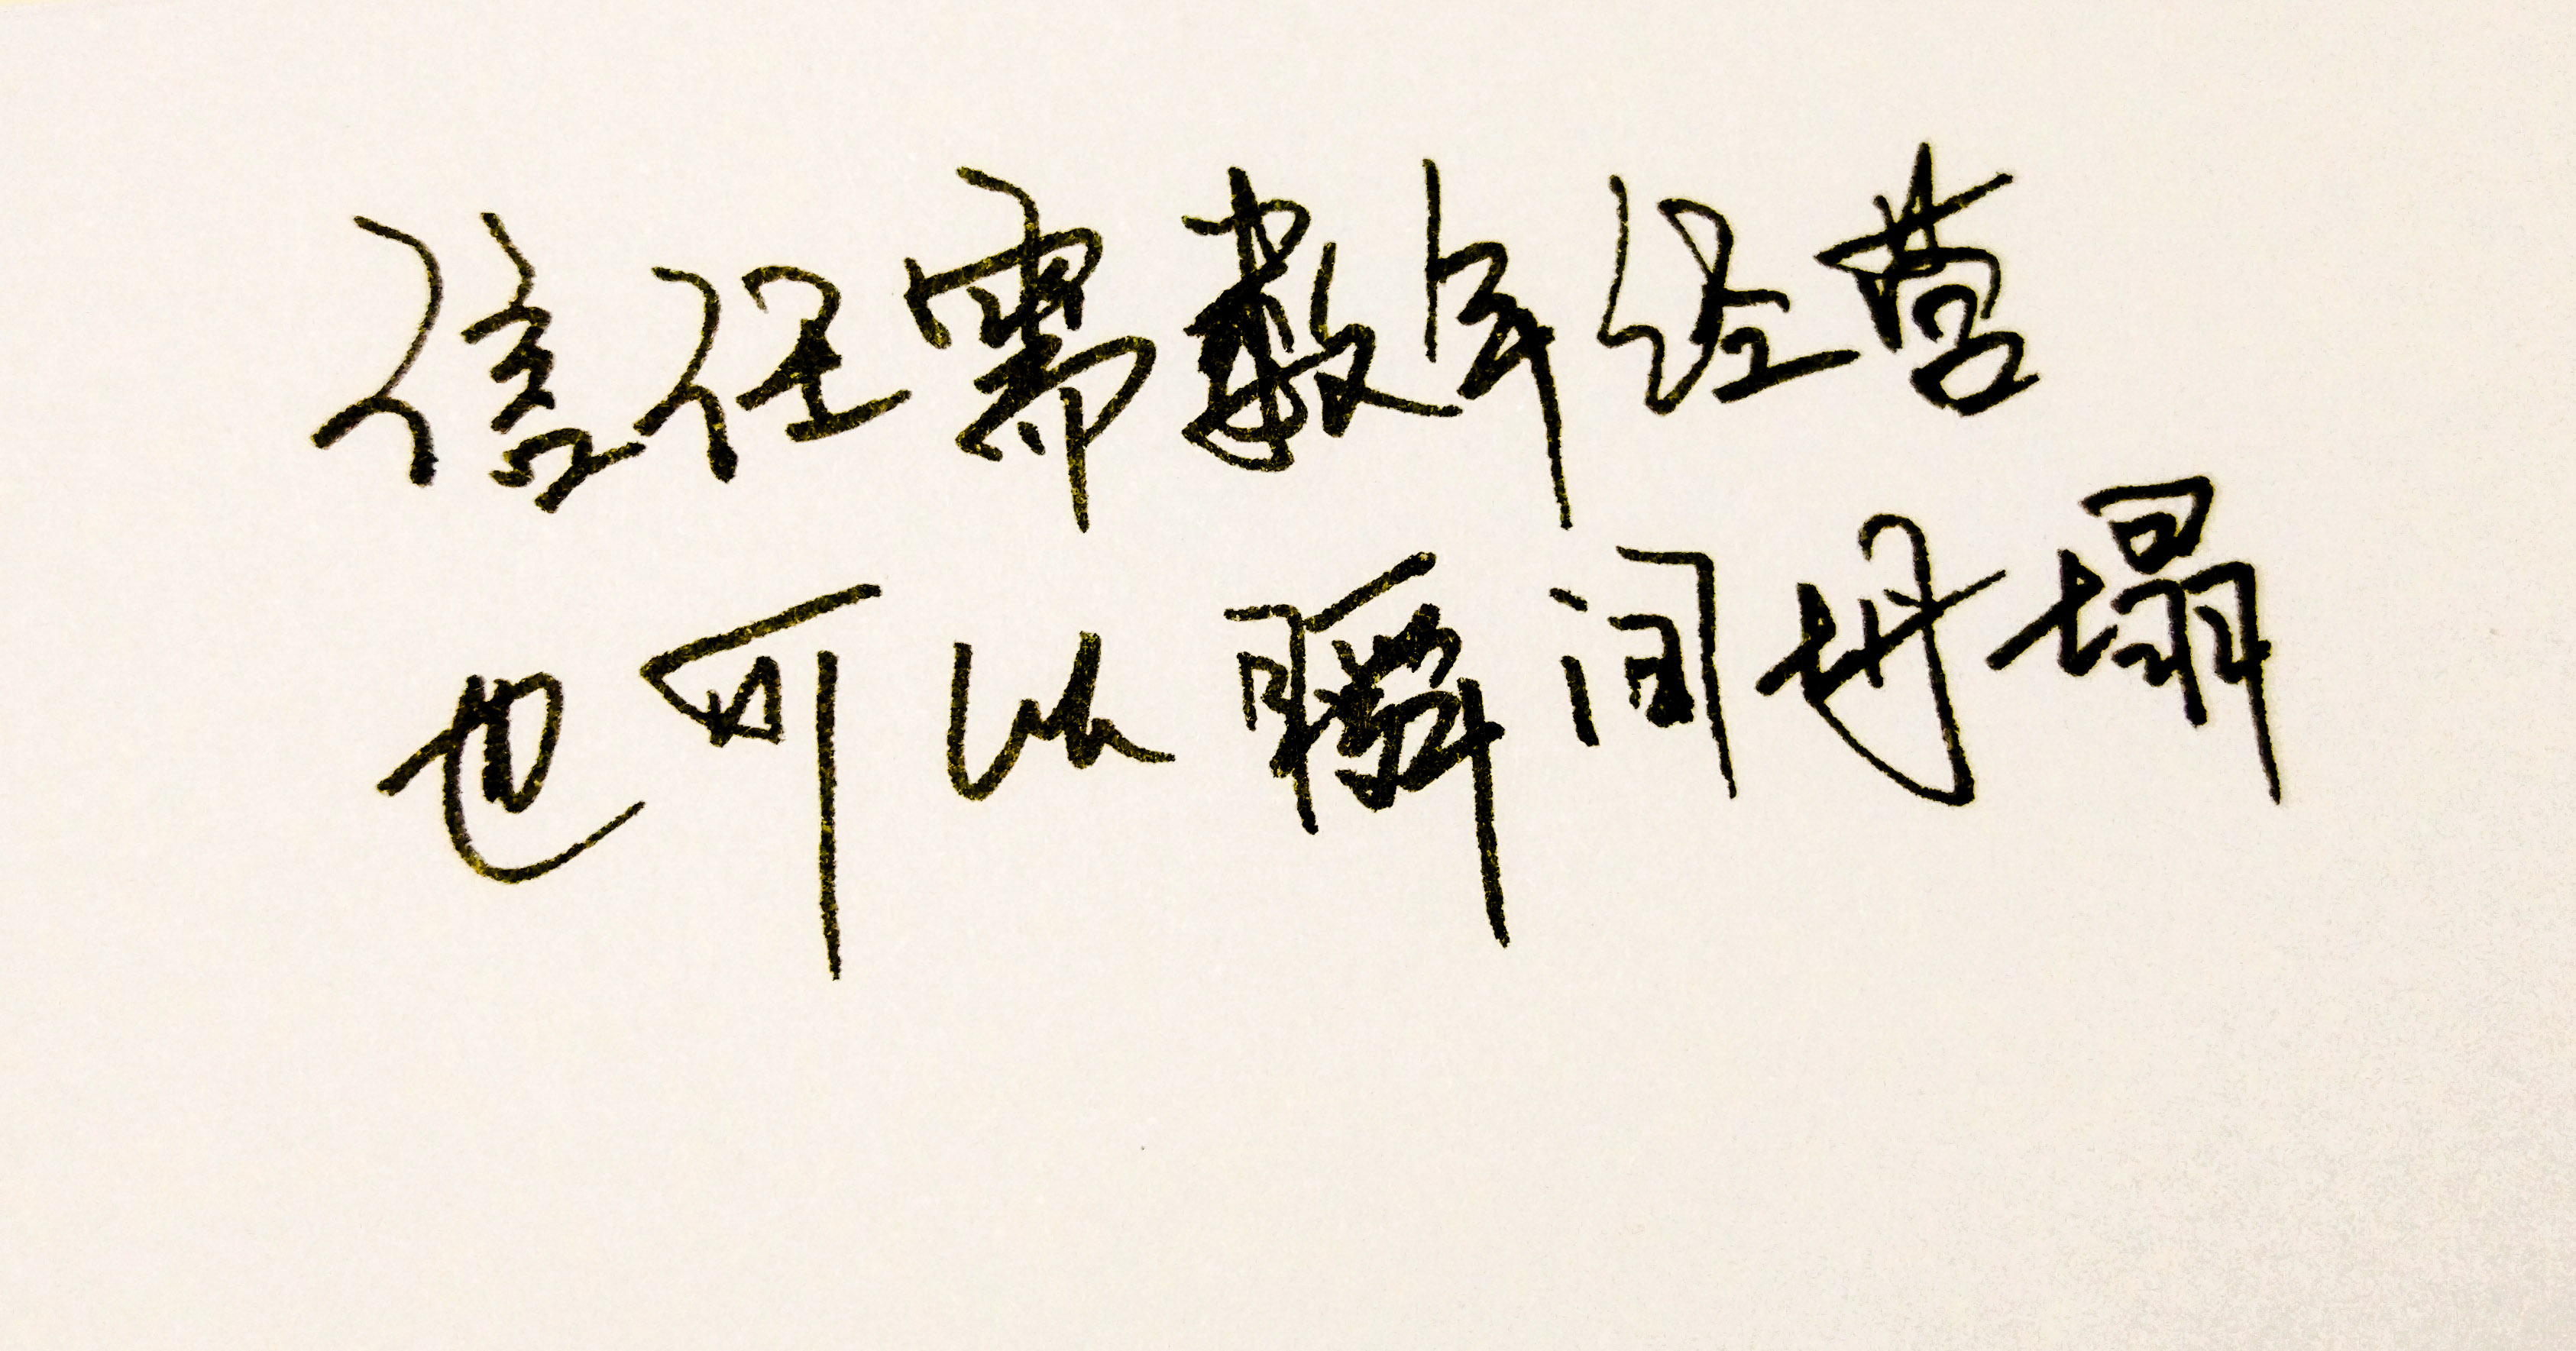 信任需数年经营
也可以瞬间坍塌